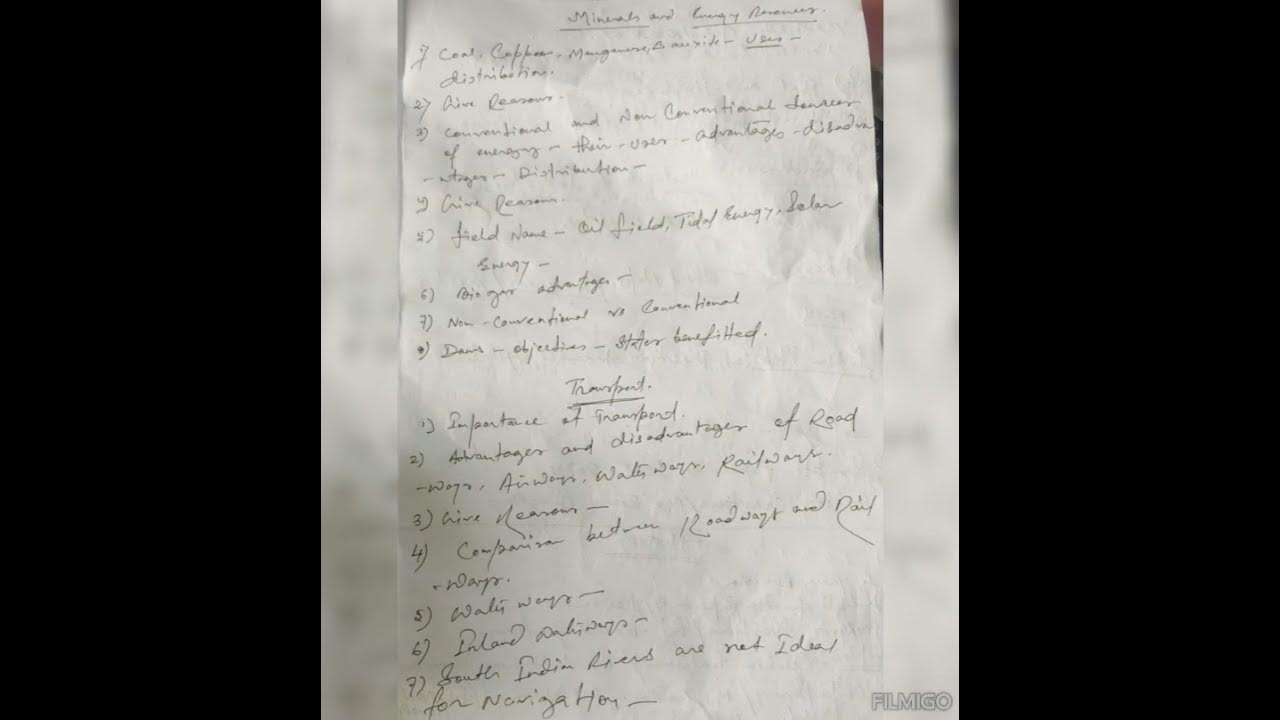 Minerals and Energy Resources.
1) Coal, Copper, Manganese, Bauxite - Uses -
distribution.
2) Give Reasons.
3) Conventional and Non Conventional Sources
of energy - their - uses - advantages - disadva
- ntages - Distribution -
4) Give Reasons.
5) field Name - Oil field, Tidal Energy, Solar
Energy -
6) Bio gas advantages -
7) Non-Conventional vs Conventional
8) Dams - objectives - States benefitted.
Transport.
1) Importance of Transport.
2) Advantages and disadvantages of Road
-ways, Airways, Waterways, Railways.
3) Give Reasons -
4) Comparison between Roadways and Rail
- ways.
5) Water ways -
6) Inland waterways -
7) South Indian Rivers are not Ideal
for Navigation -
FILMIGO